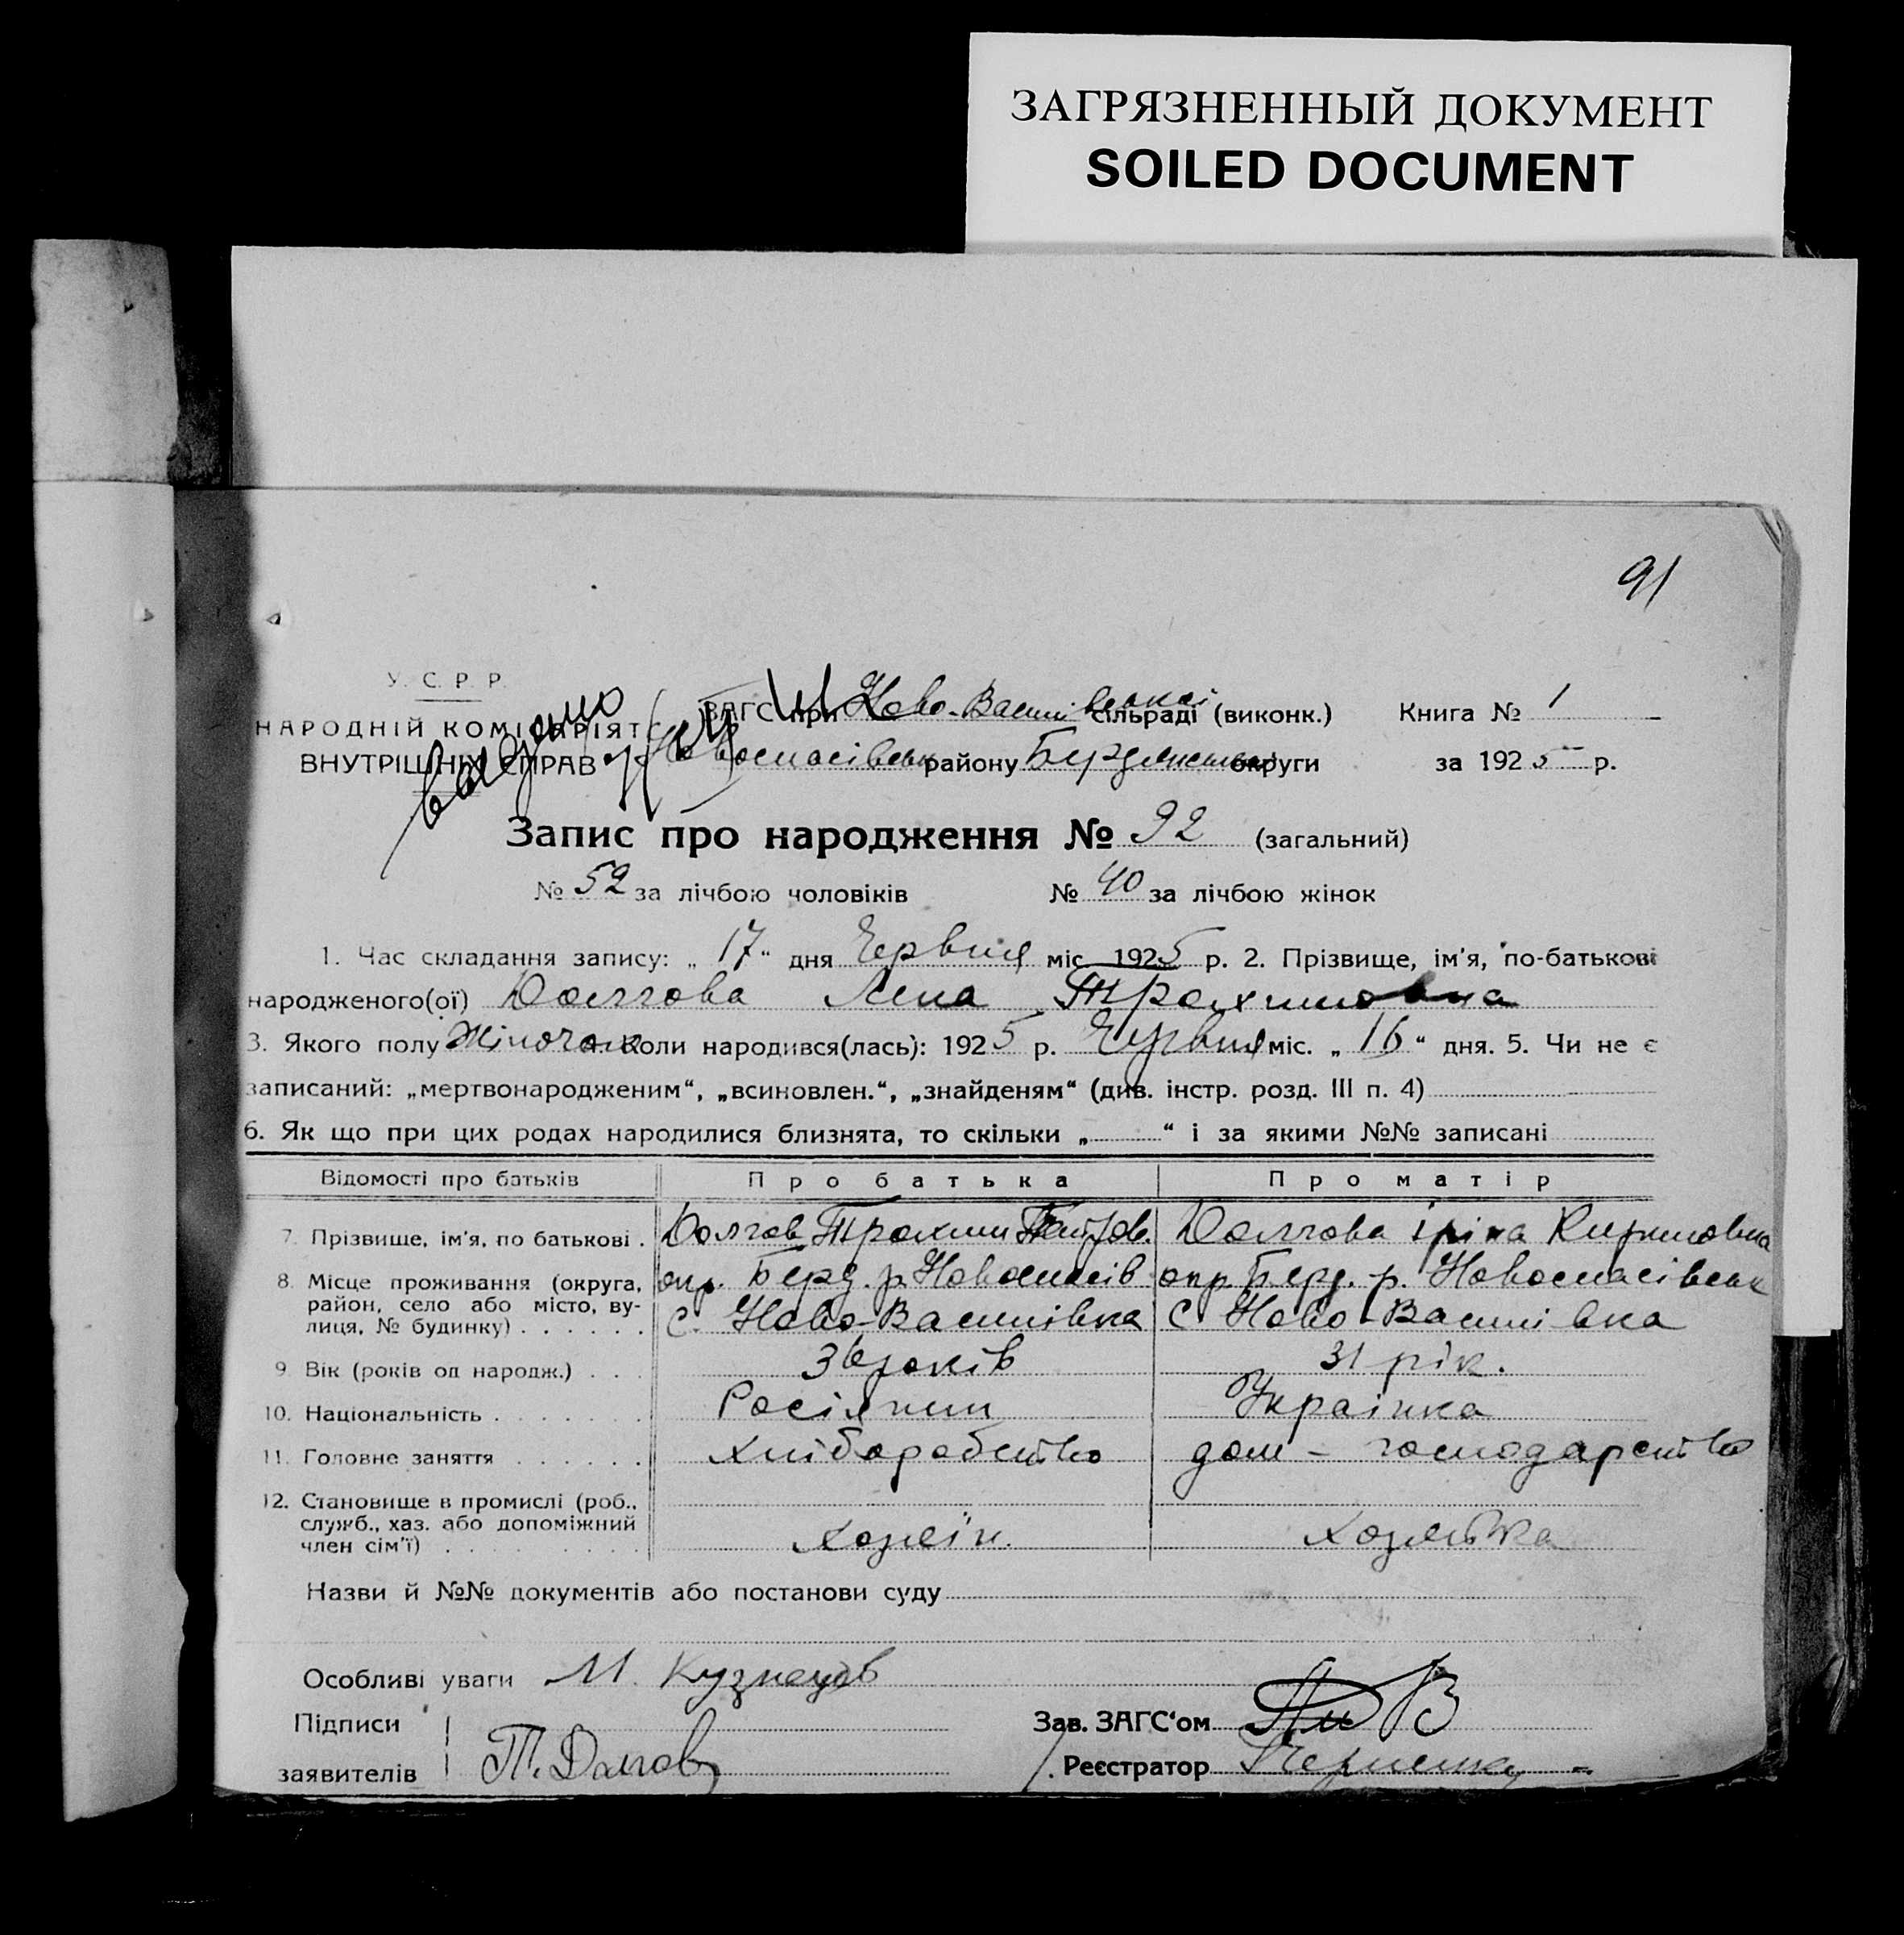 ЗАГРЯЗНЕННЫЙ ДОКУМЕНТ
SOILED DOCUMENT
91
У. С. Р. Р.
НАРОДНІЙ КОМІСАРІЯТ
ВНУТРІШНІХ СПРАВ
ЗАГС при Ново-Василівській сільраді (виконк.) Книга № 1
Новоспасівськ району Бердянської округи за 1925 р.
Запис про народження № 92 (загальний)
№ 52 за лічбою чоловіків № 40 за лічбою жінок
1. Час складання запису: „17“ дня Червня міс. 1925 р. 2. Прізвище, ім'я, по-батькові
народженого(ої) Долгова Лена Трохимовна
3. Якого полу Жіночок Коли народився(лась): 1925 р. Червня міс. „16“ дня. 5. Чи не є
записаний: „мертвонародженим“, „всиновлен.“, „знайденям“ (див. інстр. розд. III п. 4)
6. Як що при цих родах народилися близнята, то скільки „ “ і за якими №№ записані
Відомості про батьків Про батька Про матір
7. Прізвище, ім'я, по батькові . Долгов Трохим Петров. Долгова Іріна Кириловна
8. Місце проживання (округа, окр. Берд. р. Новоспасів окр. Берд. р. Новоспасівськ
район, село або місто, ву-
лиця, № будинку) . . . . . . с. Ново-Василівка С Ново-Василівка
9 Вік (років од народж.) . . . 36 років 31 рік.
10. Національність . . . . . . . Росіянин Українка
11. Головне заняття . . . . . . Хліборобство дом - господарство
12. Становище в промислі (роб.,
служб., хаз. або допоміжний
член сім'ї) . . . . . . . . . Хозяїн. Хозяйка
Назви й №№ документів або постанови суду
Особливі уваги М. Кузнецов
Підписи Зав. ЗАГС'ом
заявителів Т. Долгов Реєстратор